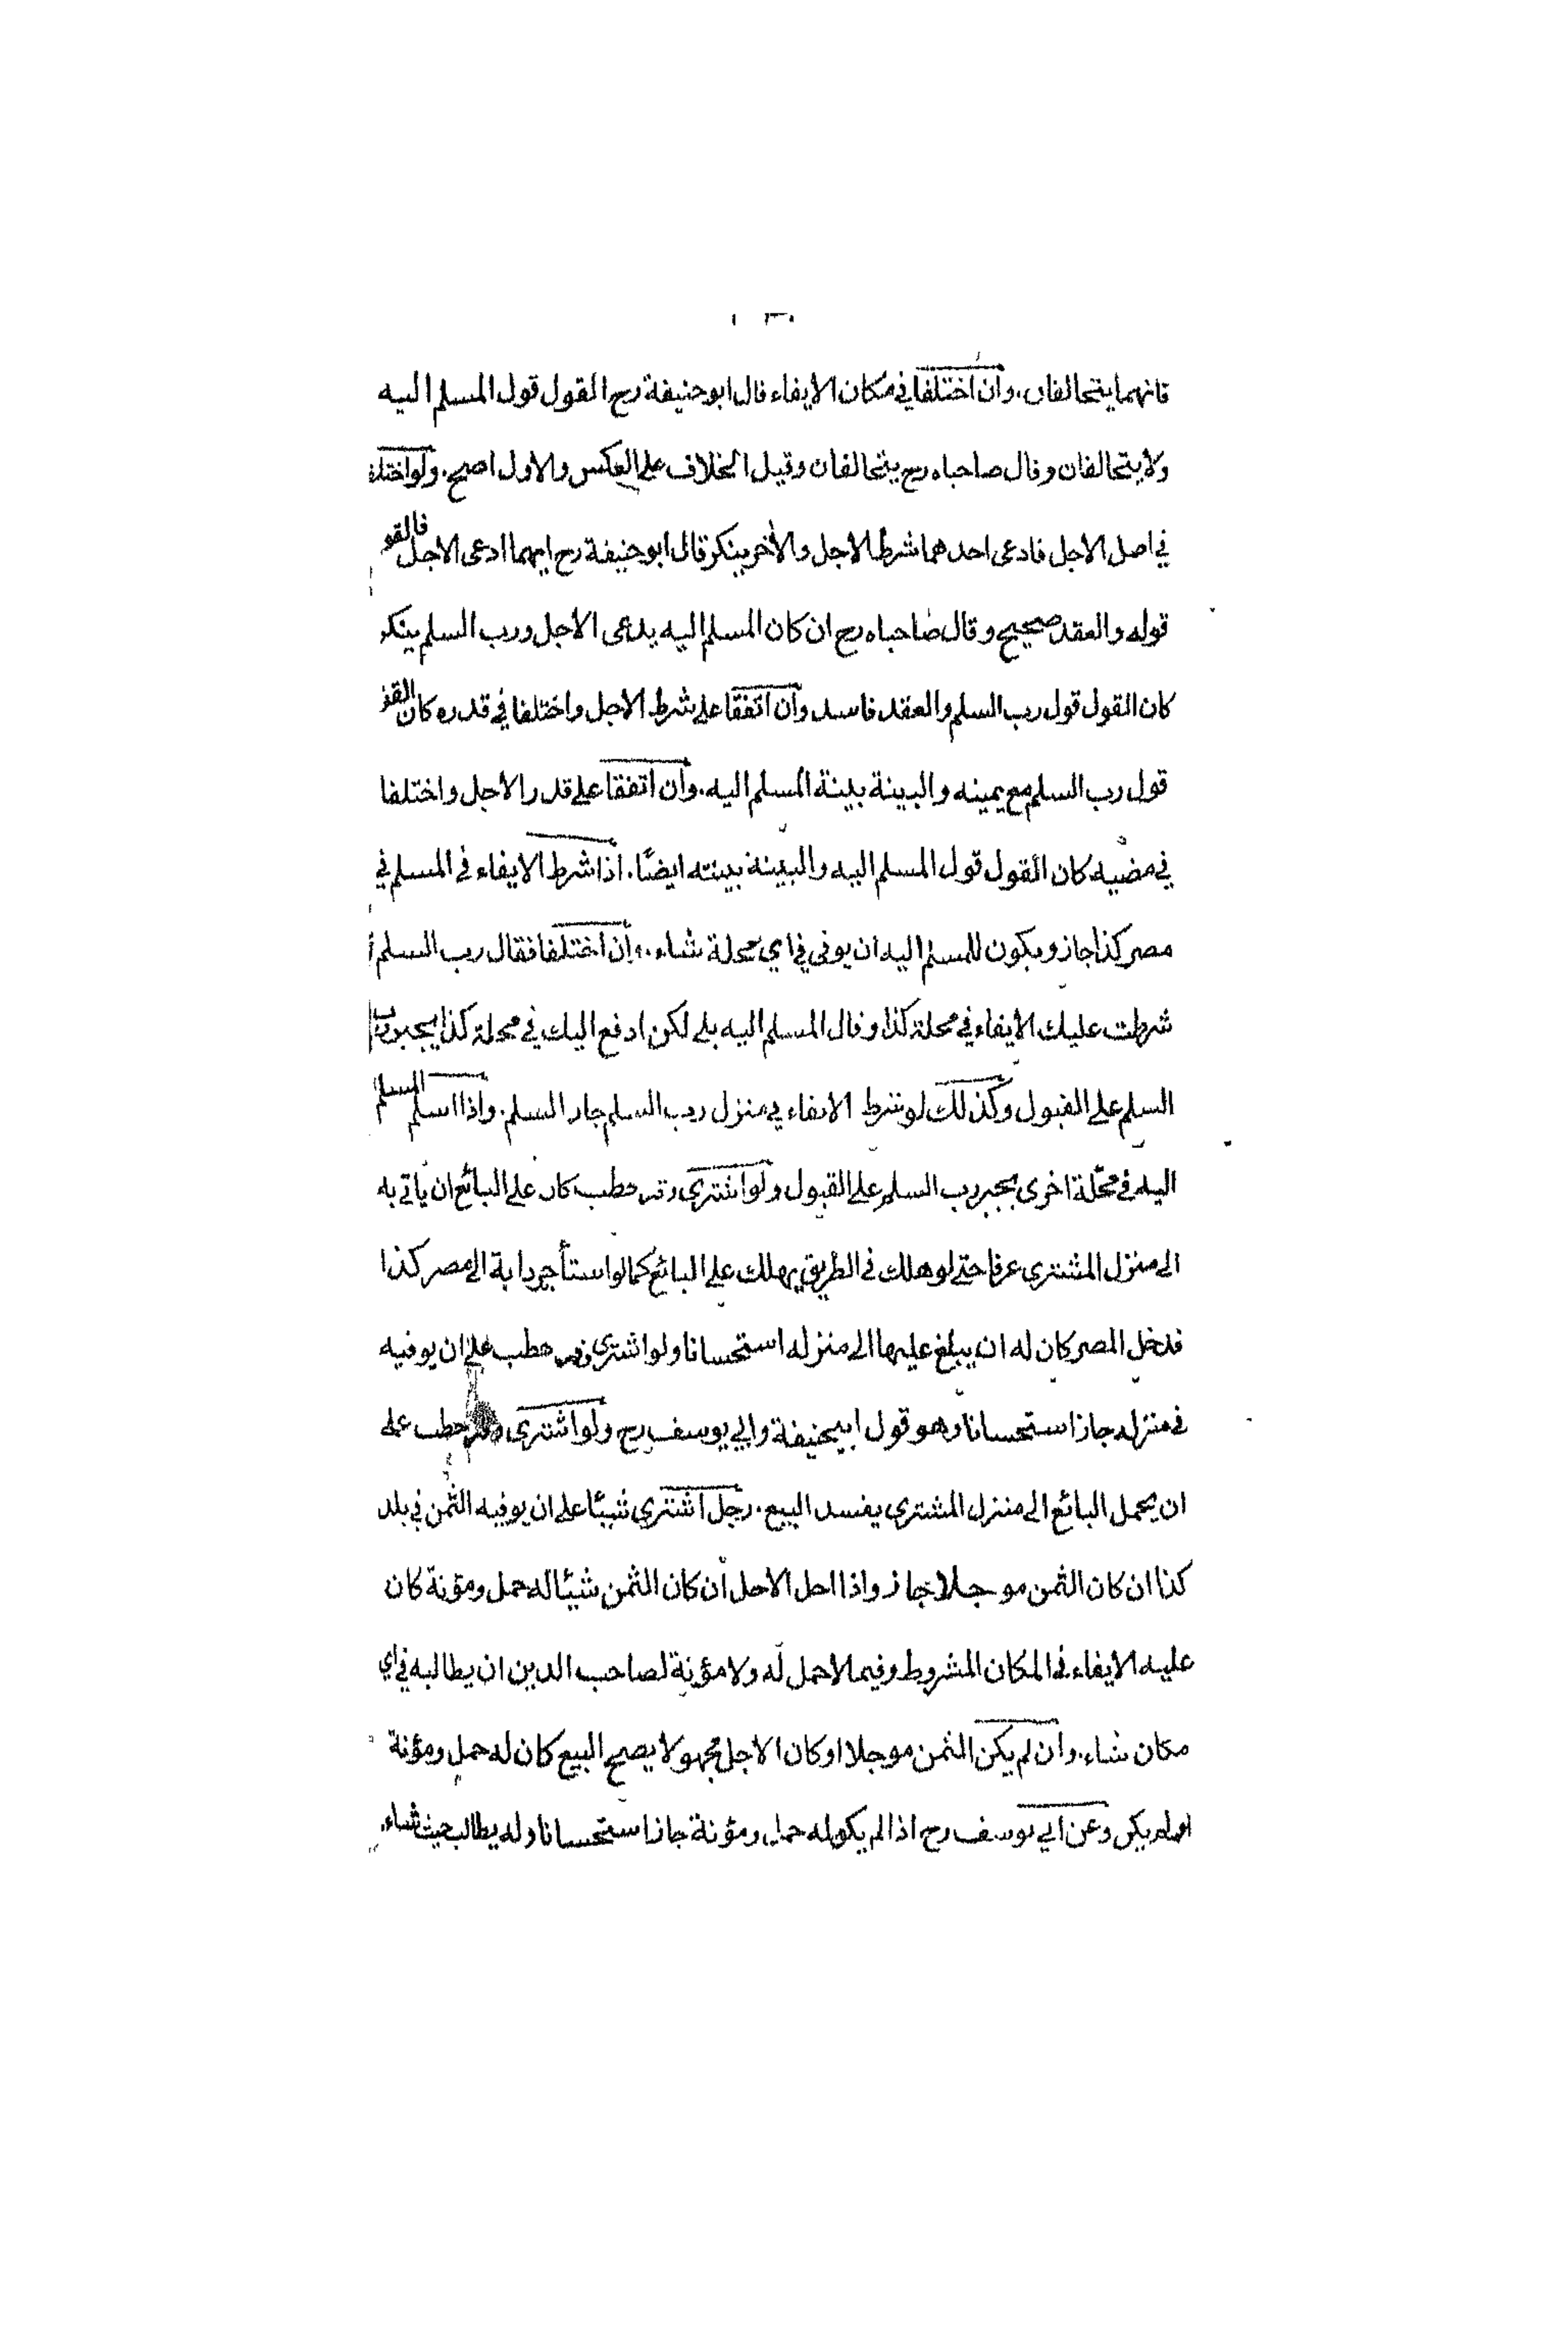 فانهما يتحالفان. وان اختلفا في مكان الايفاء قال ابو حنيفة رح القول قول المسلم اليه
ولا يتحالفان وقال صاحباه رح يتحالفان وقيل الخلاف على العكس والاول اصح. ولو اختلفا
في اصل الاجل فادعى احدهما شرط الاجل والآخر ينكر قال ابو حنيفة رح ايهما ادعى الاجل فالقو
قوله والعقد صحيح وقال صاحباه رح ان كان المسلم اليه يدعى الاجل ورب السلم ينكر
كان القول قول رب السلم والعقد فاسد وان اتفقا على شرط الاجل واختلفا في قدره كان القو
قول رب السلم مع يمينه والبينة بينة المسلم اليه. وان اتفقا على قدر الاجل واختلفا
في مضيه كان القول قول المسلم اليه والبينة بينته ايضًا. اذا شرط الايفاء في المسلم في
مصر كذا جاز ويكون للمسلم اليه ان يوفى في اي محلة شاء. وان اختلفا فقال رب السلم
شرطت عليك الايفاء في محلة كذا وقال المسلم اليه بلى لكن ادفع اليك في محلة كذا يجبر رب
السلم على القبول وكذلك لو شرط الايفاء في منزل رب السلم جاز السلم. واذا اسلم المسلم
اليه في محلّة اخرى يجبر رب السلم على القبول ولو اشترى وقر حطب كان على البائع ان ياتي به
الى منزل المشترى عرفا حتى لو هلك في الطريق يهلك على البائع كما لو استأجر دابة الى مصر كذا
فدخل المصر كان له ان يبلغ عليها الى منزله استحسانا ولو اشترى وقر حطب على ان يوفيه
في منزله جاز استحسانا وهو قول ابيحنيفة وابي يوسف رح ولو اشترى وقر حطب على
ان يحمل البائع الى منزل المشترى يفسد البيع. رجل اشترى شيئا على ان يوفيه الثمن في بلد
كذا ان كان الثمن موجلا جاز واذا احل الاجل ان كان الثمن شيئا له حمل ومؤنة كان
عليه الايفاء في المكان المشروط وفيما لا حمل له ولا مؤنة لصاحب الدين ان يطالبه في اي
مكان شاء. وان لم يكن الثمن موجلا او كان الاجل مجهولا يصح البيع كان له حمل ومؤنة
او لم يكن وعن ابي يوسف رح اذا لم يكن له حمل ومؤنة جاز استحسانا وله يطالب حيث شاء.